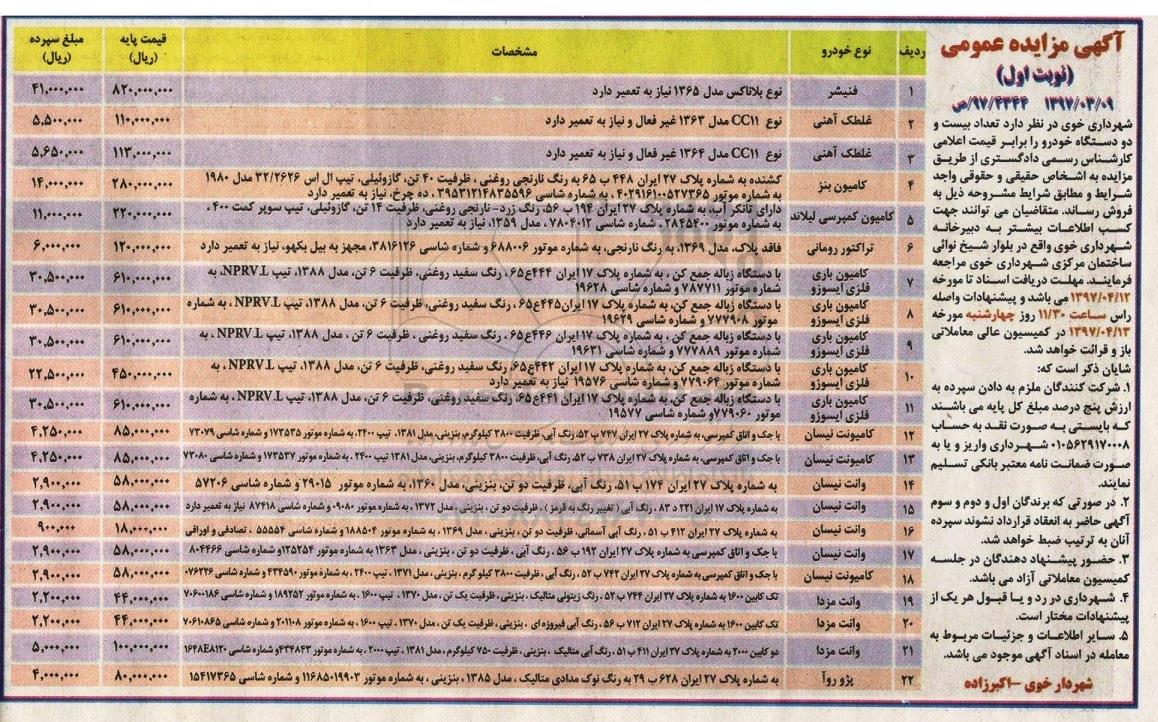 آگهی مزایده عمومی
(نوبت اول)
۱۳۹۷/۰۳/۰۹ ۹۷/۴۳۴۴/ص
شهرداری خوی در نظر دارد تعداد بیست و
دو دستگاه خودرو را برابر قیمت اعلامی
کارشناس رسمی دادگستری از طریق
مزایده به اشخاص حقیقی و حقوقی واجد
شرایط و مطابق شرایط مشروحه ذیل به
فروش رساند. متقاضیان می توانند جهت
کسب اطلاعات بیشتر به دبیرخانه
شهرداری خوی واقع در بلوار شیخ نوائی
ساختمان مرکزی شهرداری خوی مراجعه
فرمایند. مهلت دریافت اسناد تا مورخه
۱۳۹۷/۰۴/۱۲ می باشد و پیشنهادات واصله
راس ساعت ۱۱/۳۰ روز چهارشنبه مورخه
۱۳۹۷/۰۴/۱۳ در کمیسیون عالی معاملاتی
باز و قرائت خواهد شد.
شایان ذکر است که:
۱. شرکت کنندگان ملزم به دادن سپرده به
ارزش پنج درصد مبلغ کل پایه می باشند
که بایستی به صورت نقد به حساب
۰۱۰۵۶۲۹۱۷۰۰۰۸ شهرداری واریز و یا به
صورت ضمانت نامه معتبر بانکی تسلیم
نمایند.
۲. در صورتی که برندگان اول و دوم و سوم
آگهی حاضر به انعقاد قرارداد نشوند سپرده
آنان به ترتیب ضبط خواهد شد.
۳. حضور پیشنهاد دهندگان در جلسه
کمیسیون معاملاتی آزاد می باشد.
۴. شهرداری در رد و یا قبول هر یک از
پیشنهادات مختار است.
۵. سایر اطلاعات و جزئیات مربوط به
معامله در اسناد آگهی موجود می باشد.
شهردار خوی –اکبرزاده
ردیف نوع خودرو مشخصات قیمت پایه (ریال) مبلغ سپرده (ریال)
۱ فنیشر نوع بلاناکس مدل ۱۳۶۵ نیاز به تعمیر دارد ۸۲۰,۰۰۰,۰۰۰ ۴۱,۰۰۰,۰۰۰
۲ غلطک آهنی نوع CC11 مدل ۱۳۶۳ غیر فعال و نیاز به تعمیر دارد ۱۱۰,۰۰۰,۰۰۰ ۵,۵۰۰,۰۰۰
۳ غلطک آهنی نوع CC11 مدل ۱۳۶۴ غیر فعال و نیاز به تعمیر دارد ۱۱۳,۰۰۰,۰۰۰ ۵,۶۵۰,۰۰۰
۴ کامیون بنز کشنده به شماره پلاک ۲۷ ایران ۴۴۸ ب ۶۵ به رنگ نارنجی روغنی ، ظرفیت ۴۰ تن، گازوئیلی، تیپ ال اس ۳۲/۲۶۲۶ مدل ۱۹۸۰
به شماره موتور ۴۰۲۹۱۶۱۰۰۵۲۷۳۶۵ ، به شماره شاسی ۳۹۵۳۱۲۱۴۸۳۵۵۹۶ ، ده چرخ، نیاز به تعمیر دارد ۲۸۰,۰۰۰,۰۰۰ ۱۴,۰۰۰,۰۰۰
۵ کامیون کمپرسی لیلاند دارای تانکر آب، به شماره پلاک ۲۷ ایران ۱۹۴ ب ۵۶، رنگ زرد–نارنجی روغنی، ظرفیت ۱۴ تن، گازوئیلی، تیپ سوپر کمت ۴۰۰ ،
به شماره موتور ۲۸۴۵۴۰۰ ، شماره شاسی ۷۸۰۴۰۱۲ ، مدل ۱۳۵۹، نیاز به تعمیر دارد ۲۲۰,۰۰۰,۰۰۰ ۱۱,۰۰۰,۰۰۰
۶ تراکتور رومانی فاقد پلاک، مدل ۱۳۶۹، به رنگ نارنجی، به شماره موتور ۶۸۸۰۰۶ و شماره شاسی ۳۸۱۶۱۲۶، مجهز به بیل بکهو، نیاز به تعمیر دارد ۱۲۰,۰۰۰,۰۰۰ ۶,۰۰۰,۰۰۰
۷ کامیون باری فلزی ایسوزو با دستگاه زباله جمع کن ، به شماره پلاک ۱۷ ایران ۴۴۴ع۶۵ ، رنگ سفید روغنی، ظرفیت ۶ تن، مدل ۱۳۸۸، تیپ NPRV.L، به
شماره موتور ۷۸۷۷۱۱ و شماره شاسی ۱۹۶۲۸ ۶۱۰,۰۰۰,۰۰۰ ۳۰,۵۰۰,۰۰۰
۸ کامیون باری فلزی ایسوزو با دستگاه زباله جمع کن، به شماره پلاک ۱۷ ایران۴۴۵ع۶۵ ، رنگ سفید روغنی، ظرفیت ۶ تن، مدل ۱۳۸۸، تیپ NPRV.L ، به شماره
موتور ۷۷۷۹۰۸ و شماره شاسی ۱۹۶۲۹ ۶۱۰,۰۰۰,۰۰۰ ۳۰,۵۰۰,۰۰۰
۹ کامیون باری فلزی ایسوزو با دستگاه زباله جمع کن، به شماره پلاک ۱۷ ایران ۴۴۶ع۶۵ ، رنگ سفید روغنی ، ظرفیت ۶ تن ، مدل ۱۳۸۸، تیپ NPRV.L ، به
شماره موتور ۷۷۷۸۸۹ و شماره شاسی ۱۹۶۳۱ ۶۱۰,۰۰۰,۰۰۰ ۳۰,۵۰۰,۰۰۰
۱۰ کامیون باری فلزی ایسوزو با دستگاه زباله جمع کن، به شماره پلاک ۱۷ ایران ۴۴۲ع۶۵، رنگ سفید روغنی، ظرفیت ۶ تن، مدل ۱۳۸۸، تیپ NPRV.L ، به
شماره موتور ۷۷۹۰۶۴ و شماره شاسی ۱۹۵۷۶ نیاز به تعمیر دارد ۴۵۰,۰۰۰,۰۰۰ ۲۲,۵۰۰,۰۰۰
۱۱ کامیون باری فلزی ایسوزو با دستگاه زباله جمع کن، به شماره پلاک ۱۷ ایران ۴۴۱ع۶۵، رنگ سفید روغنی، ظرفیت ۶ تن، مدل ۱۳۸۸، تیپ NPRV.L ، به شماره
موتور ۷۷۹۰۶۰و شماره شاسی ۱۹۵۷۷ ۶۱۰,۰۰۰,۰۰۰ ۳۰,۵۰۰,۰۰۰
۱۲ کامیونت نیسان با جک و اتاق کمپرسی، به شماره پلاک ۲۷ ایران ۷۴۷ ب ۵۲، رنگ آبی، ظرفیت ۳۸۰۰ کیلوگرم، بنزینی، مدل ۱۳۸۱، تیپ ۲۴۰۰، به شماره موتور ۱۷۳۵۳۵ و شماره شاسی ۷۳۰۷۹ ۸۵,۰۰۰,۰۰۰ ۴,۲۵۰,۰۰۰
۱۳ کامیونت نیسان با جک و اتاق کمپرسی، به شماره پلاک ۲۷ ایران ۷۳۸ ب ۵۲، رنگ آبی، ظرفیت ۳۸۰۰ کیلوگرم، بنزینی، مدل ۱۳۸۱ تیپ ۲۴۰۰ ، به شماره موتور ۱۷۳۵۳۷ و شماره شاسی ۷۳۰۸۰ ۸۵,۰۰۰,۰۰۰ ۴,۲۵۰,۰۰۰
۱۴ وانت نیسان به شماره پلاک ۲۷ ایران ۱۷۴ ب ۵۱، رنگ آبی، ظرفیت دو تن، بنزینی، مدل ۱۳۶۰، به شماره موتور ۲۹۰۱۵ و شماره شاسی ۵۷۲۰۶ ۵۸,۰۰۰,۰۰۰ ۲,۹۰۰,۰۰۰
۱۵ وانت نیسان به شماره پلاک ۱۷ ایران ۲۲۱ د ۸۳ ، رنگ آبی ( تغییر رنگ به قرمز ) ، ظرفیت دو تن ، بنزینی ، مدل ۱۳۷۲ ، به شماره موتور ۰۹۰۸۰ و شماره شاسی ۸۷۴۱۸ نیاز به تعمیر دارد ۵۸,۰۰۰,۰۰۰ ۲,۹۰۰,۰۰۰
۱۶ وانت نیسان به شماره پلاک ۲۷ ایران ۴۱۲ ب ۵۱ ، رنگ آبی آسمانی، ظرفیت دو تن ، بنزینی ، مدل ۱۳۶۹ ، به شماره موتور ۱۸۸۵۰۴ و شماره شاسی ۵۵۵۵۴ ، تصادفی و اوراقی ۱۸,۰۰۰,۰۰۰ ۹۰۰,۰۰۰
۱۷ وانت نیسان با جک و اتاق کمپرسی به شماره پلاک ۲۷ ایران ۱۹۲ ب ۵۶ ، رنگ آبی ، ظرفیت دو تن ، بنزینی ، مدل ۱۳۶۳ به شماره موتور ۱۲۵۲۵۴و شماره شاسی ۸۰۴۴۶۶ ۵۸,۰۰۰,۰۰۰ ۲,۹۰۰,۰۰۰
۱۸ کامیونت نیسان با جک و اتاق کمپرسی به شماره پلاک ۲۷ ایران ۷۴۲ ب ۵۲ ، رنگ آبی ، ظرفیت ۳۸۰۰ کیلو گرم ، بنزینی ، مدل ۱۳۷۱ ، تیپ ۲۴۰۰ ، به شماره موتور ۴۳۴۵۹۰ و شماره شاسی ۰۷۶۲۲۶ ۵۸,۰۰۰,۰۰۰ ۲,۹۰۰,۰۰۰
۱۹ وانت مزدا تک کابین ۱۶۰۰ به شماره پلاک ۲۷ ایران ۷۴۴ ب ۵۲ ، رنگ زیتونی متالیک ، بنزینی ، ظرفیت یک تن ، مدل ۱۳۷۰ ، تیپ ۱۶۰۰ ، به شماره موتور ۱۸۹۲۵۲ و شماره شاسی ۷۰۶۰۰۱۸۶ ۴۴,۰۰۰,۰۰۰ ۲,۲۰۰,۰۰۰
۲۰ وانت مزدا تک کابین ۱۶۰۰ به شماره پلاک ۲۷ ایران ۷۱۲ ب ۵۶ ، رنگ آبی فیروزه ای ، بنزینی ، ظرفیت یک تن ، مدل ۱۳۷۰ ، تیپ ۱۶۰۰ ، به شماره موتور ۲۰۱۱۰۸ و شماره شاسی ۷۰۶۱۰۸۶۵ ۴۴,۰۰۰,۰۰۰ ۲,۲۰۰,۰۰۰
۲۱ وانت مزدا دو کابین ۲۰۰۰ به شماره پلاک ۲۷ ایران ۴۱۱ ب ۵۱ ، رنگ آبی متالیک ، بنزینی ، ظرفیت ۷۵۰ کیلوگرم ، مدل ۱۳۸۱ ، تیپ ۲۰۰۰ ، به شماره موتور ۴۳۴۸۴۳و شماره شاسی ۱۶۴۸E۸۱۲۰ ۱۰۰,۰۰۰,۰۰۰ ۵,۰۰۰,۰۰۰
۲۲ پژو روآ به شماره پلاک ۲۷ ایران ۶۲۸ ب ۲۹ به رنگ نوک مدادی متالیک ، مدل ۱۳۸۵ ، بنزینی ، به شماره موتور ۱۱۶۸۵۰۱۹۹۰۳ و شماره شاسی ۱۵۴۱۷۳۶۵ ۸۰,۰۰۰,۰۰۰ ۴,۰۰۰,۰۰۰